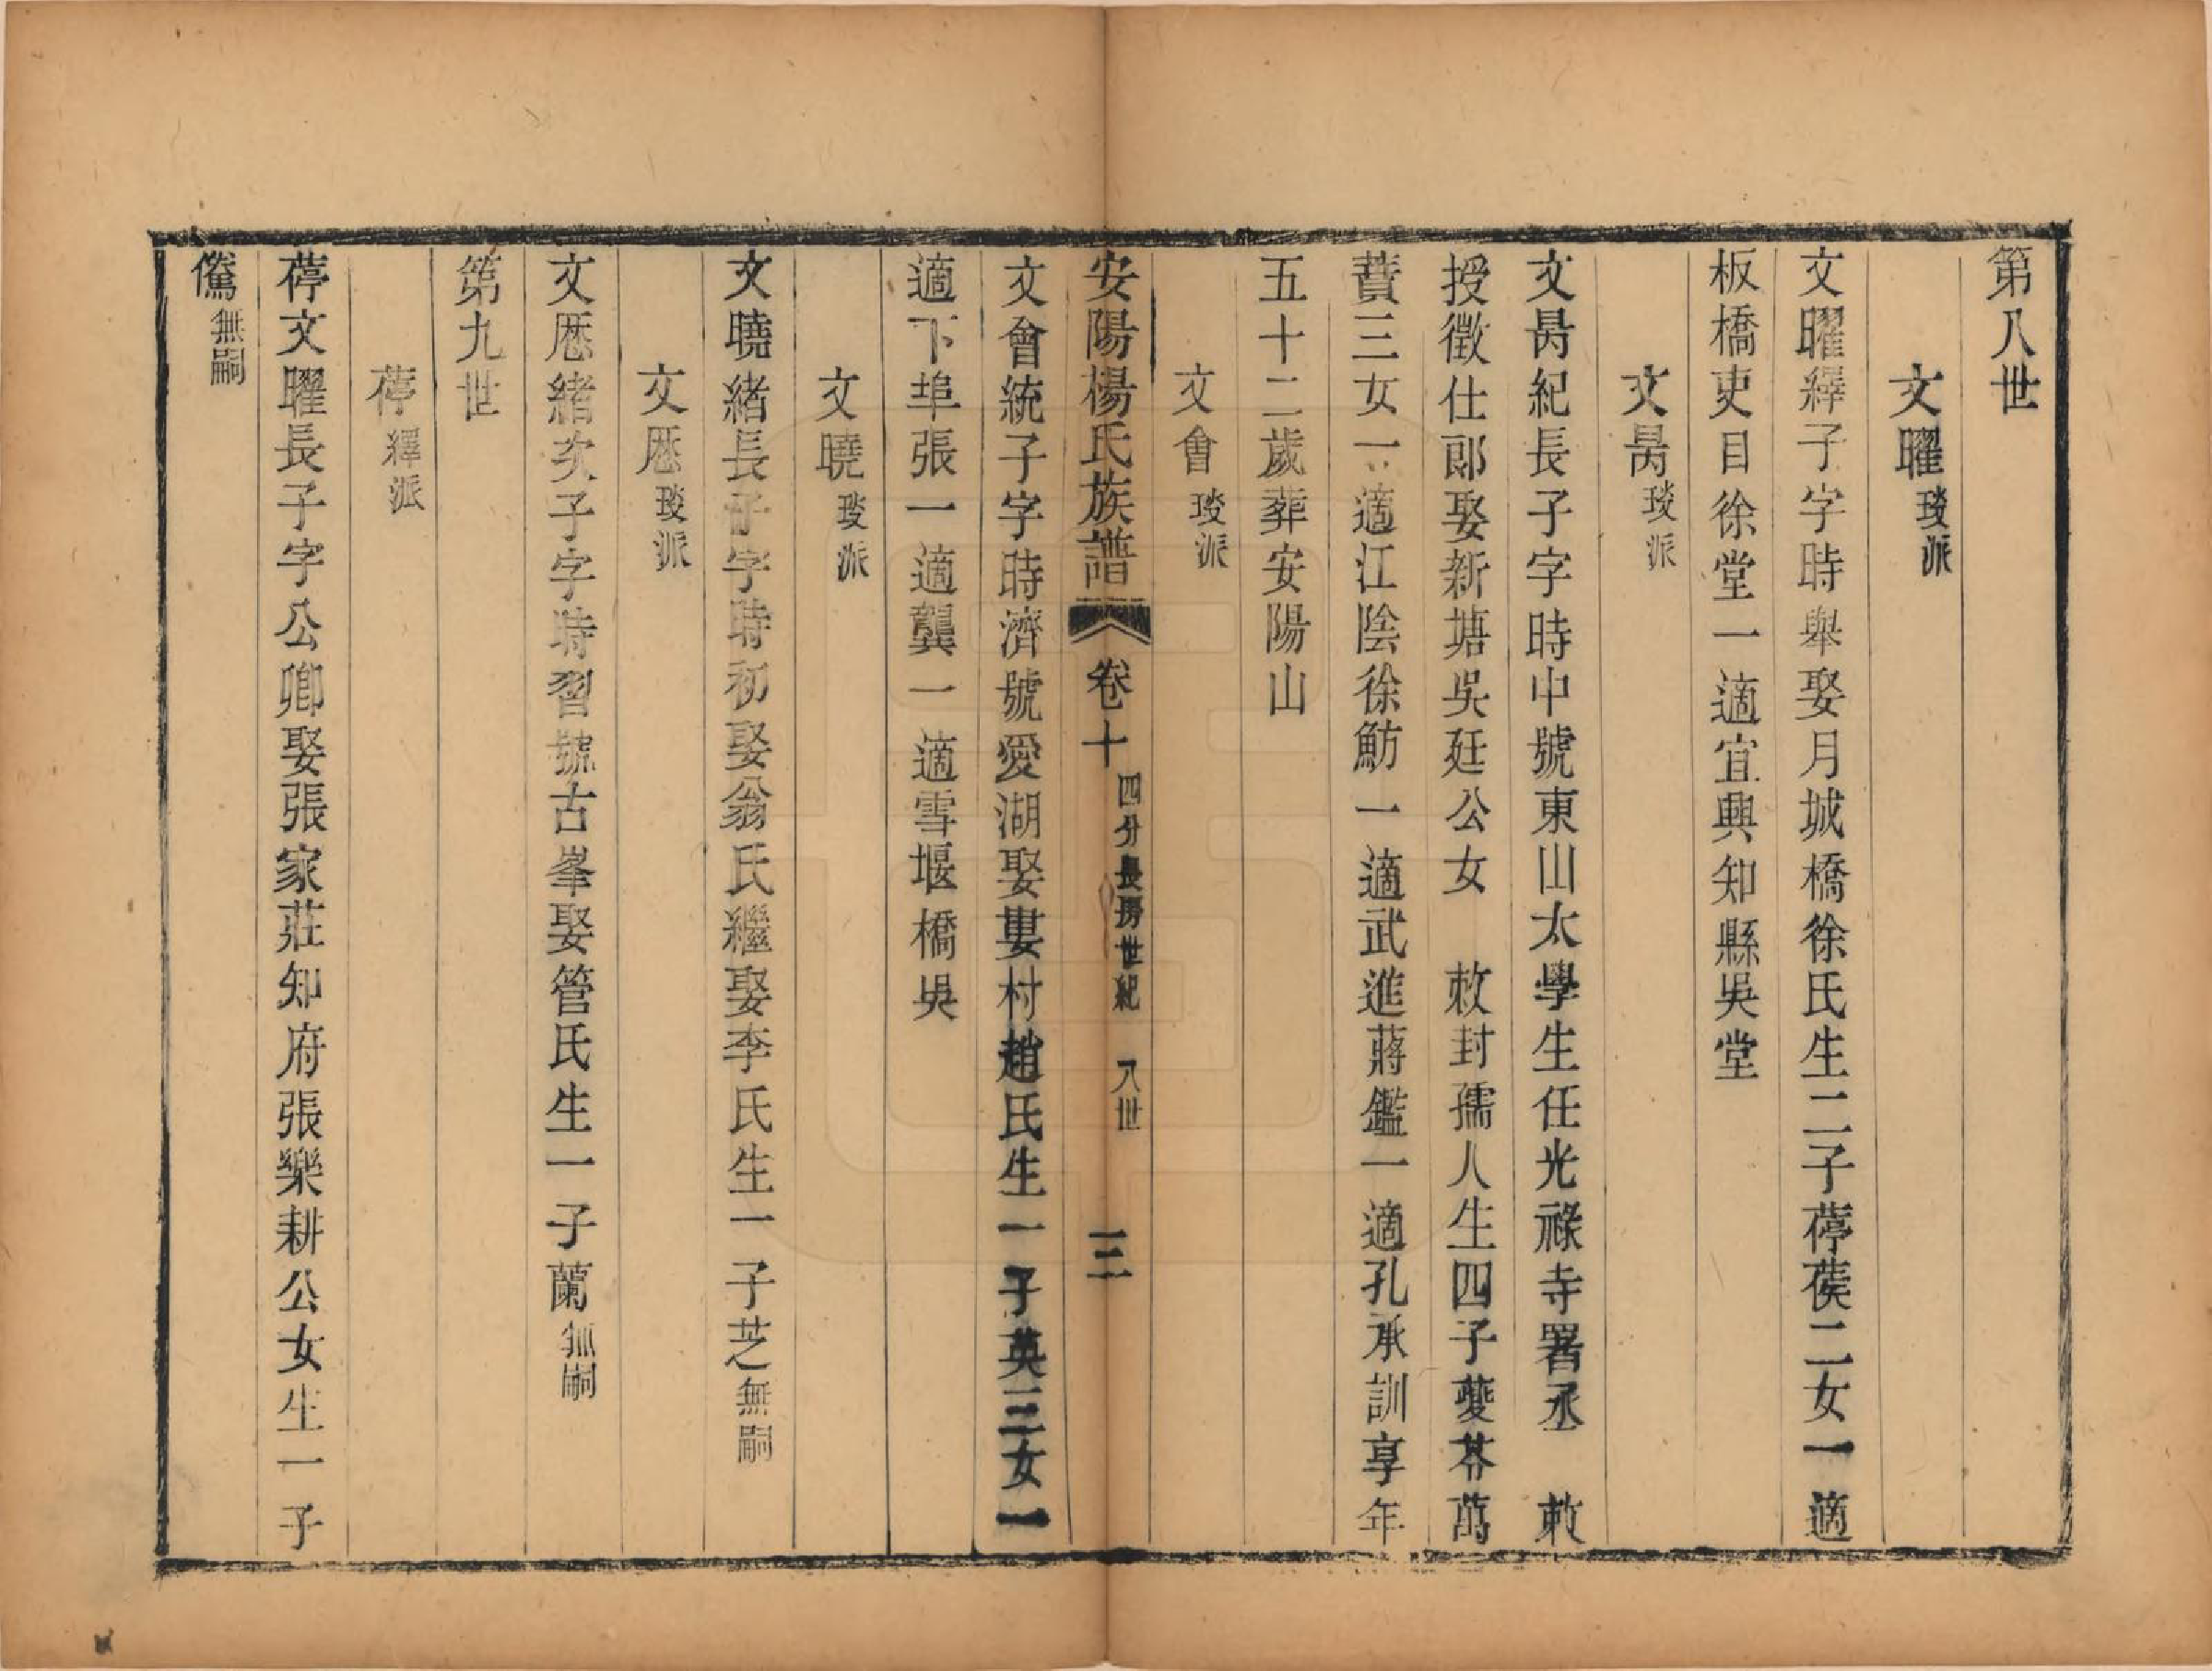 第八世
文曜琰派
文曜繹子字時舉娶月城橋徐氏生二子葶葔二女一適
板橋吏目徐堂一適宜興知縣吳堂
文昺琰派
文昺紀長子字時中號東山太學生任光祿寺署丞 敕
授徵仕郎娶新塘吳廷公女 敕封孺人生四子䕫苯萬
蕡三女一適江陰徐魴一適武進蔣鑑一適孔承訓享年
五十二歲葬安陽山
文會琰派
安陽楊氏族譜 卷十 四分長房世紀 八世 三
文會統子字時濟號愛湖娶婁村趙氏生一子英三女一
適下埠張一適龔一適雪堰橋吳
文曉琰派
文曉緒長子字時初娶翁氏繼娶李氏生一子芝無嗣
文厯琰派
文厯緒次子字時習號古峯娶管氏生一子蘭無嗣
第九世
葶繹派
葶文曜長子字公卿娶張家莊知府張樂耕公女生一子
儁無嗣